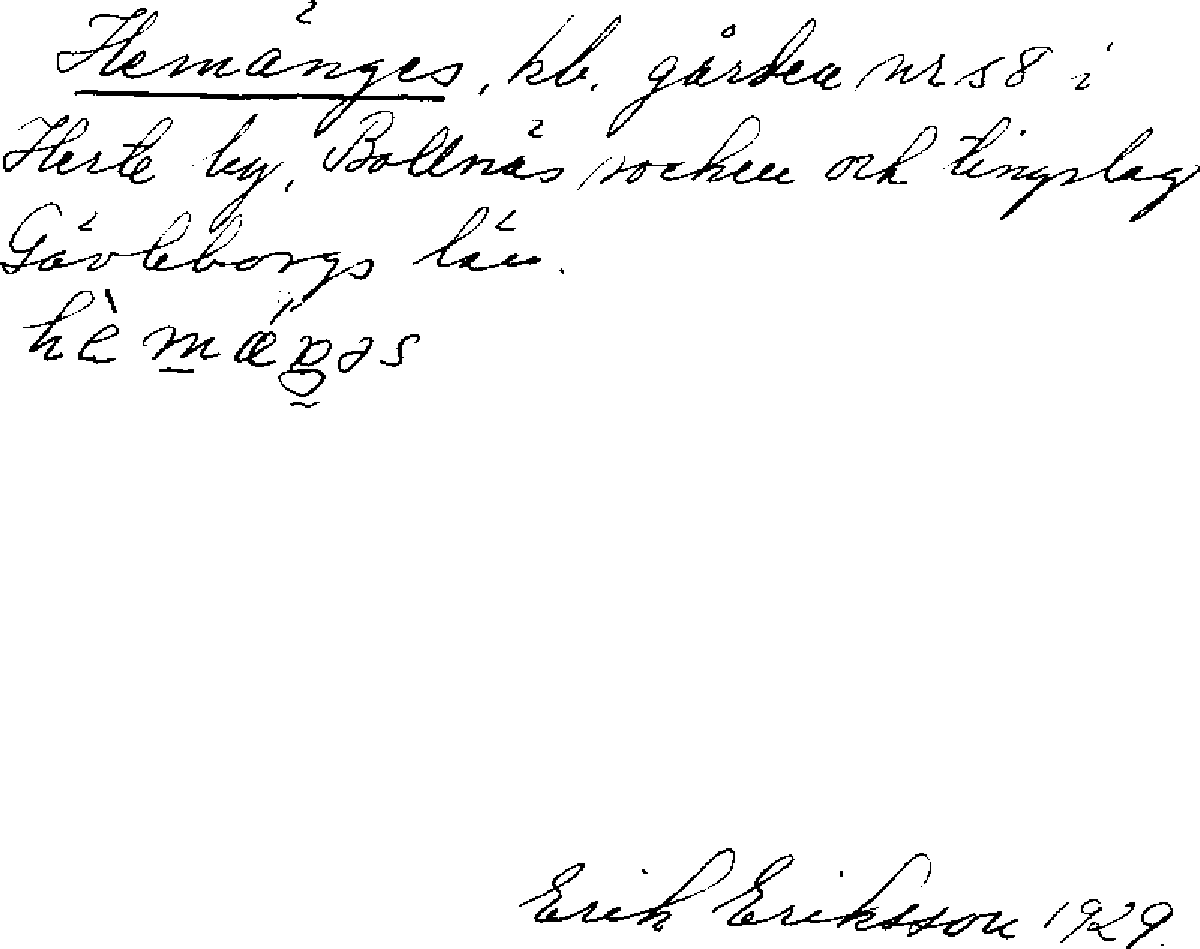 Hemänges, kb. gården nr 58 i
Herte by, Bollnäs socken och tingslag
Gävleborgs län.
Erik Eriksson 1929.